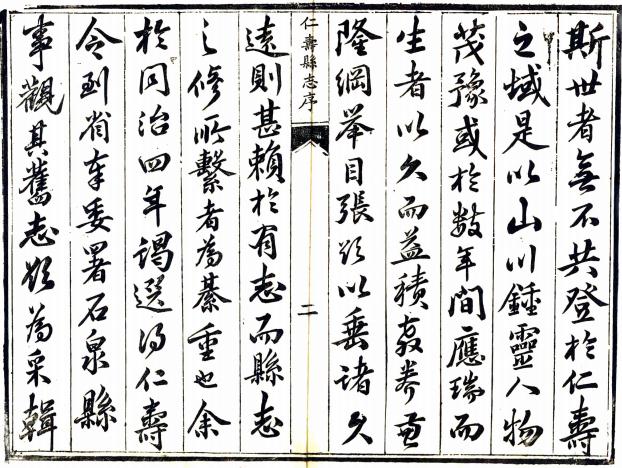 斯世者無不共登於仁壽
之域是以山川鍾靈人物
茂豫或於數年間應瑞而
生者以久而益積教養面
隆綱舉目張欲以垂諸久
仁壽縣志序
二
遠則甚賴於有志而縣志
之修所繫者為綦重也余
於同治四年謁選得仁壽
令到省奉委署石泉縣
事觀其舊志欲為采輯